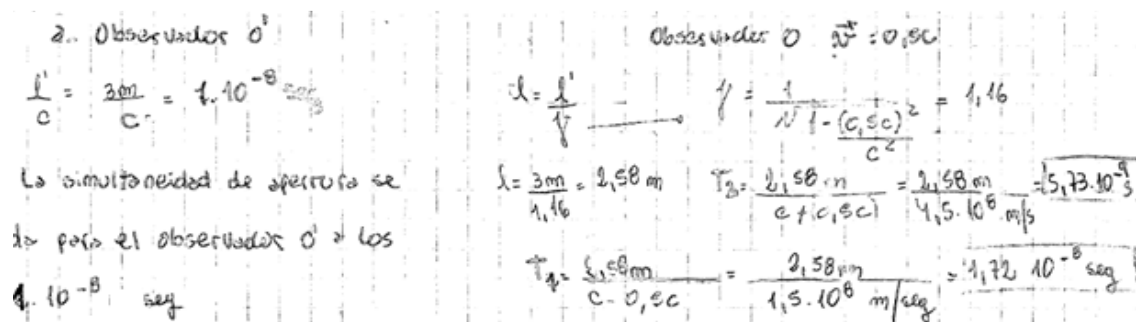 a. Observador O'
l'/c = 3m/c = 1.10^-8 seg
La simultaneidad de apertura se
da para el observador O' a los
1.10^-8 seg
Observador O v⃗ = 0,5c
l = l'/γ γ = 1/√(1-(0,5c)²/c²) = 1,16
l = 3m/1,16 = 2,58 m T₂ = 2,58 m/(c+0,5c) = 2,58 m/(4,5.10^8 m/s) = 5,73.10^-9 s
T₁ = 2,58m/(c-0,5c) = 2,58 m/(1,5.10^8 m/seg) = 1,72 10^-8 seg